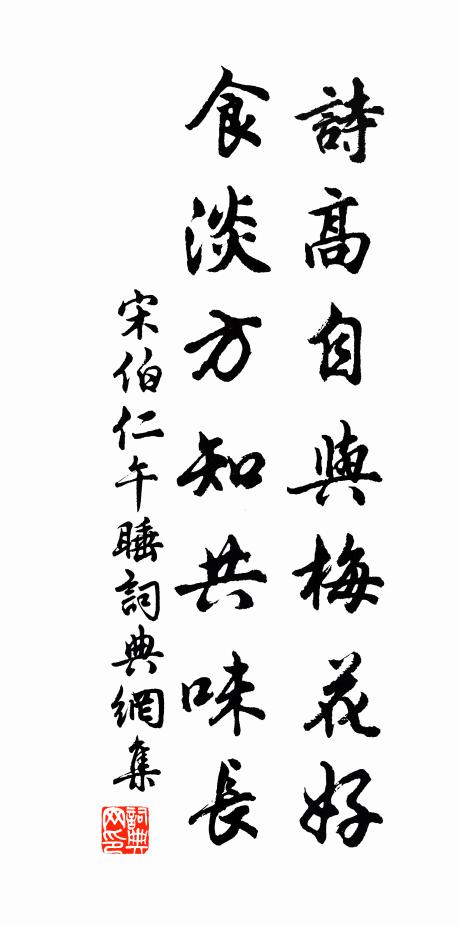 詩高自與梅花好
食淡方知共味長
宋伯仁午睡詞典網集
詞典網印